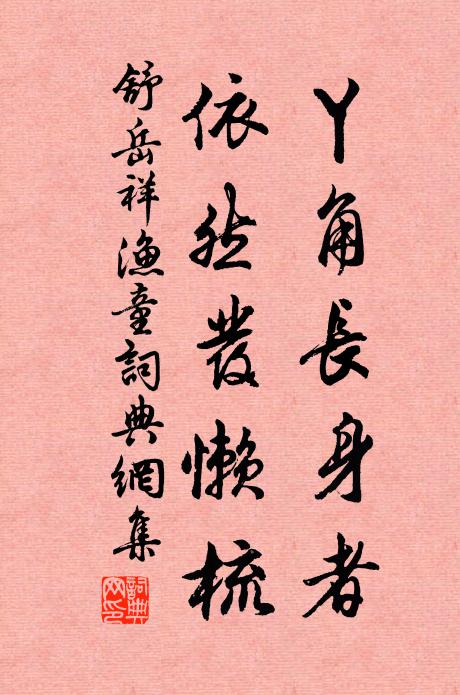 丫角長身者
依然發懶梳
舒岳祥漁童詞典網集
詞典网印